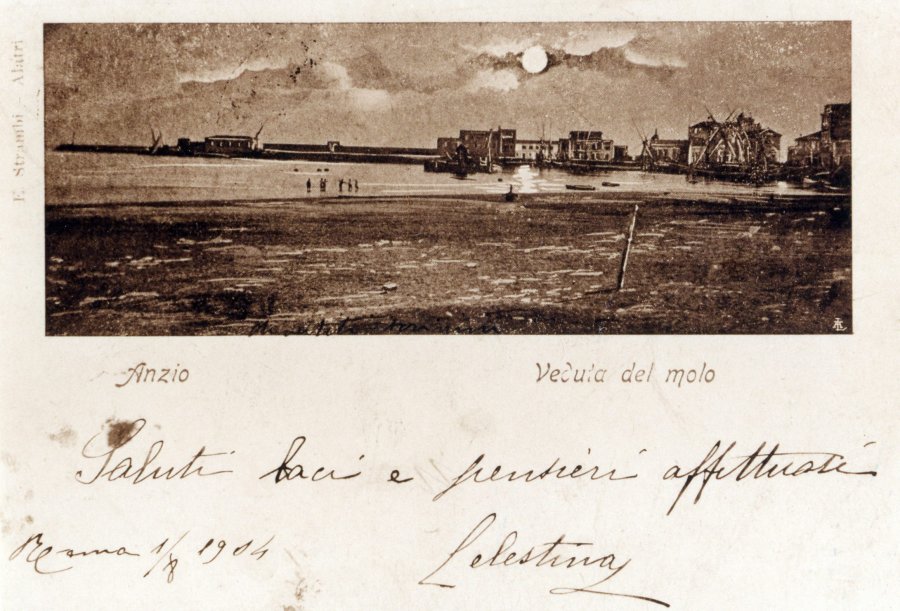 F. Strambi - Alatri
Anzio
Veduta del molo
Saluti baci e pensieri affettuosi
Roma 1/X 1904
Celestina